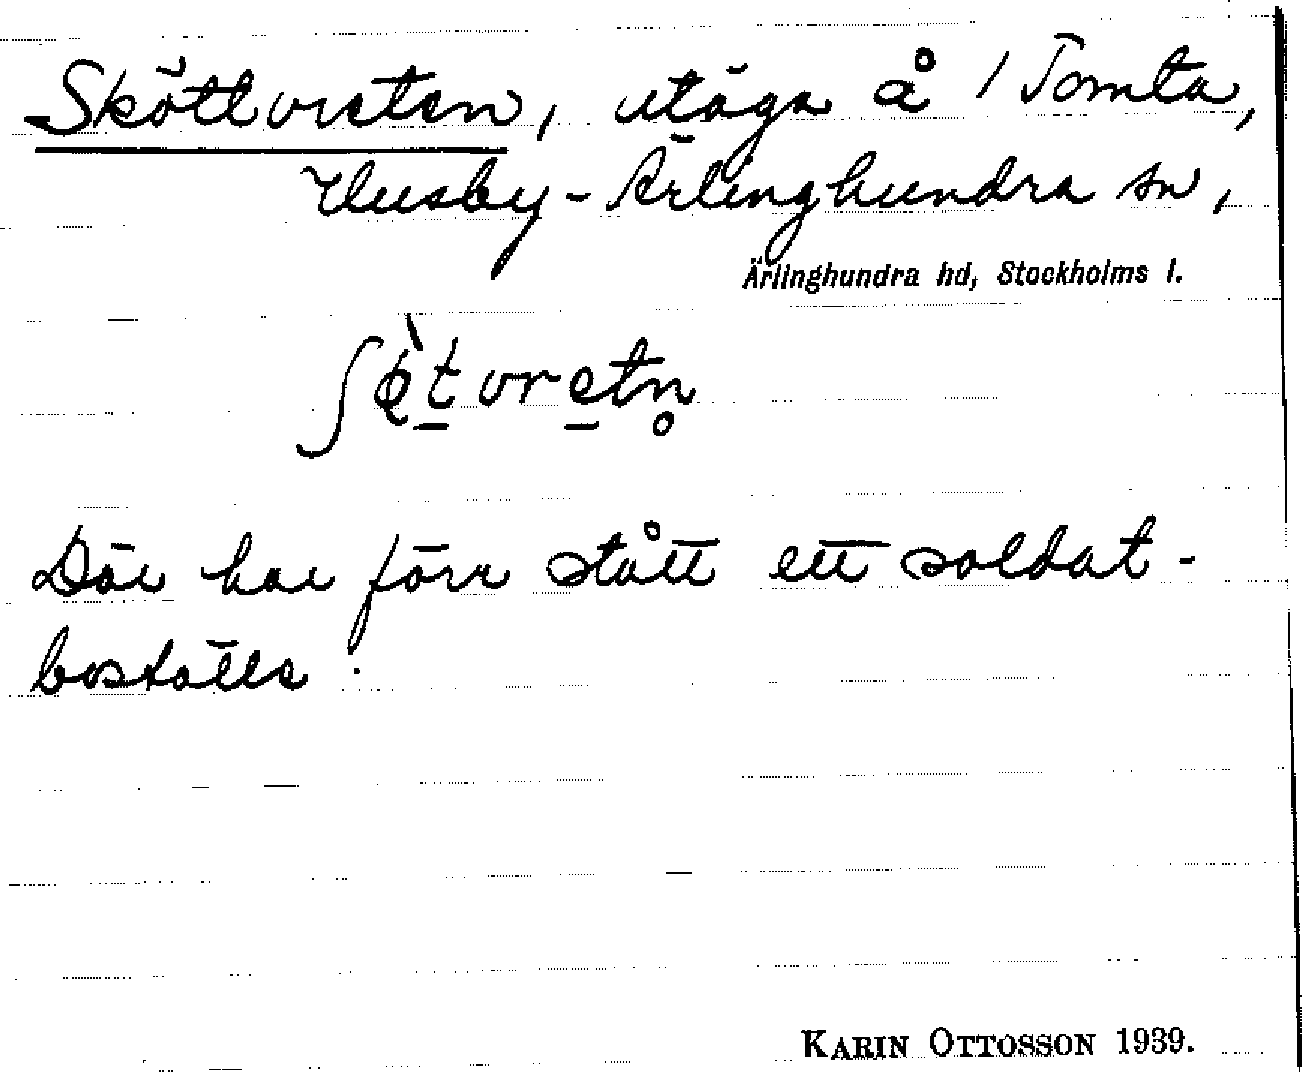 Sköttvreten, utäga å 1 Tomta,
Husby-Ärlinghundra sn,
Ärlinghundra hd, Stockholms l.
Där har förr stått ett soldat-
boställe.
KARIN OTTOSSON 1939.